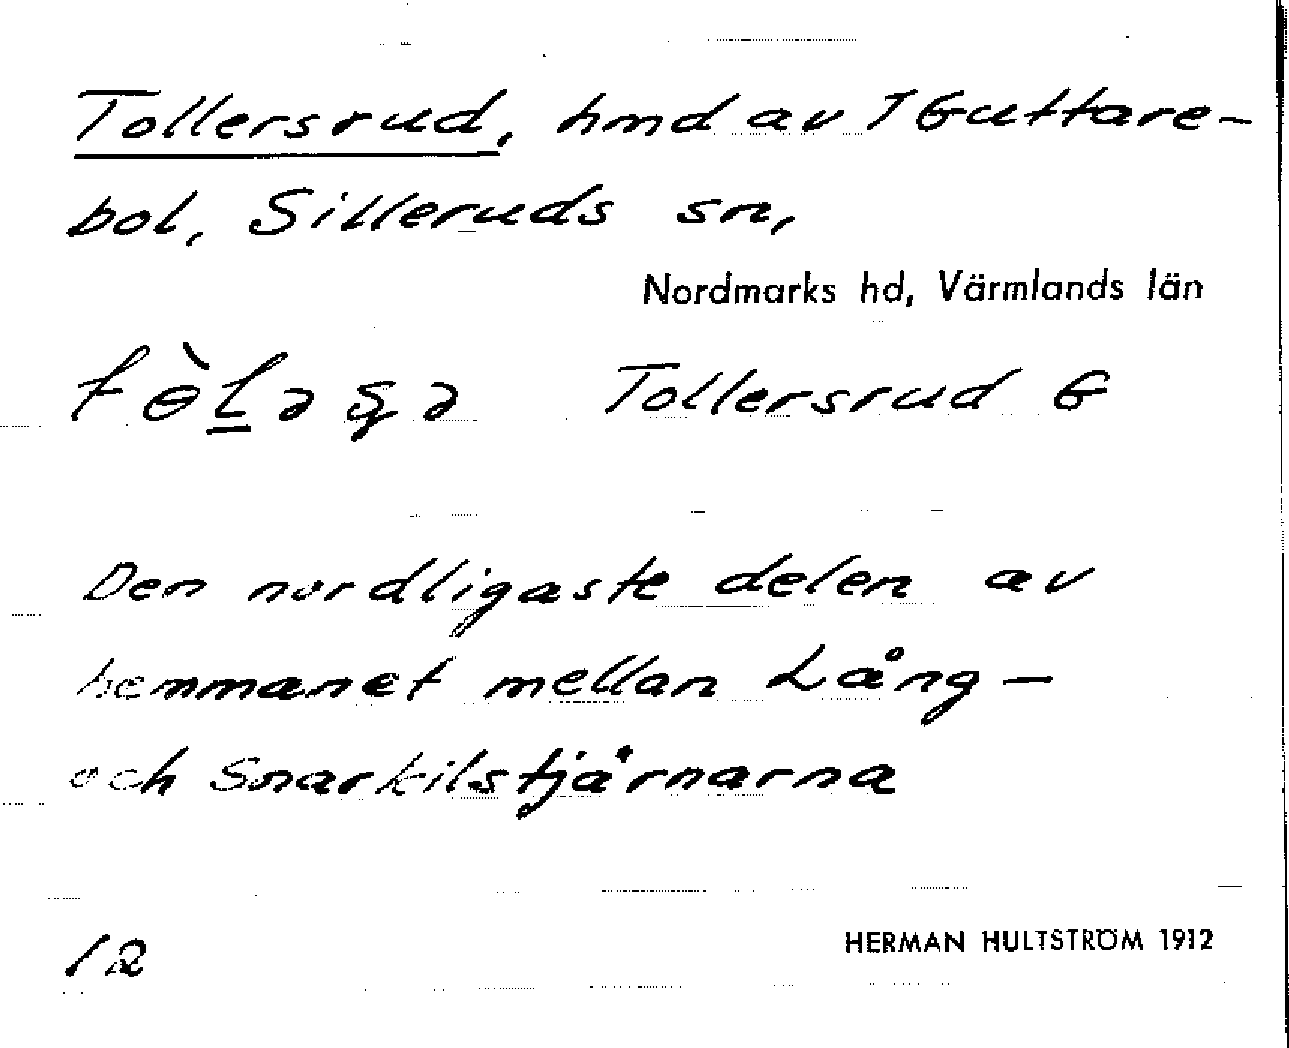 Tollersrud, hmd av 1 Guttare-
bol, Silleruds sn,
Nordmarks hd, Värmlands län
Tollersrud G
Den nordligaste delen av
hemmanet mellan Lång-
och Snarkilstjärnarna
12
HERMAN HULTSTRÖM 1912